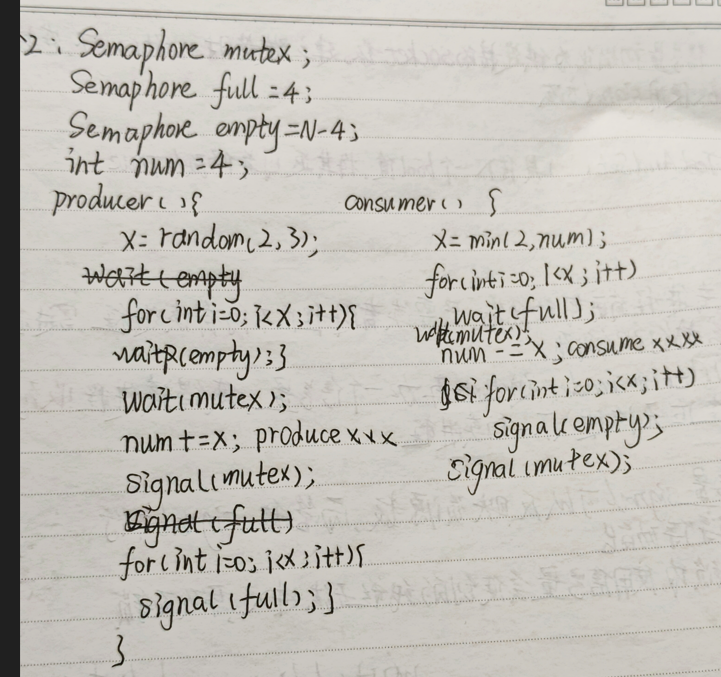 2. Semaphore mutex;
Semaphore full = 4;
Semaphore empty = N-4;
int num = 4;
producer(){
x = random(2,3);
wait(empty
for(int i=0; i<x; i++){
wait(empty);}
wait(mutex);
num += x; produce xxx
signal(mutex);
signal(full)
for(int i=0; i<x; i++){
signal(full);}
}
consumer() {
x = min(2,num);
for(int i=0; i<x; i++)
wait(full);
wait(mutex);
num -= x; consume xxxx
for(int i=0; i<x; i++)
signal(empty);
signal(mutex);